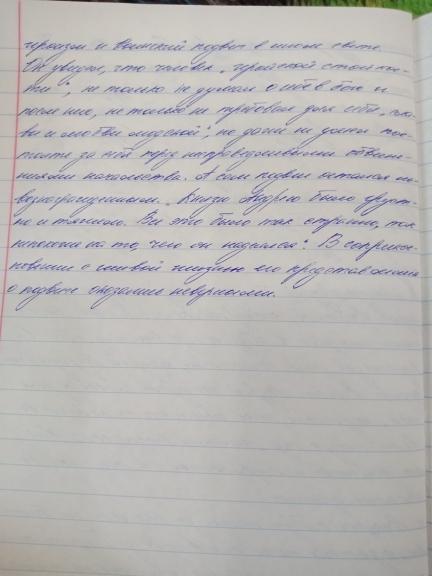 героизм и воинский подвиг в ином свете.
Он увидел, что человек „геройской стойкос-
ти", не только не думал о себе в бою и
после него, не только не требовал для себя „сла-
вы и любви людской", но даже не умел пос-
тоять за себя перед несправедливыми обвине-
ниями начальства. А сам подвиг остался не-
вознагражденным. „Князю Андрею было груст-
но и тяжело. Все это было так странно, так
непохоже на то, чего он надеялся". В соприкос-
новении с живой жизнью его представления
о подвиге оказались неверными.